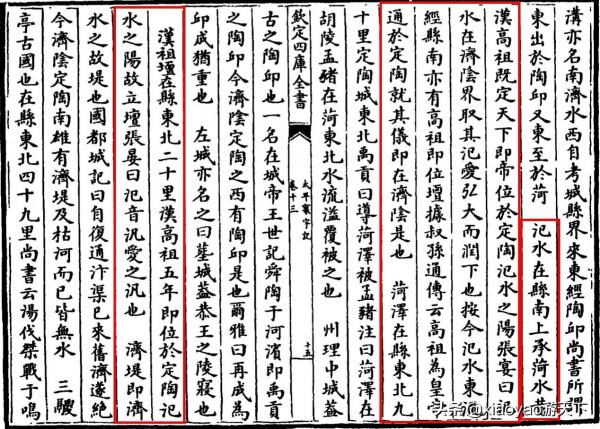 溝亦名南濟水西自考城縣界來東經陶邱尚書所謂
東出於陶邱又東至於菏　氾水在縣南上承菏水昔
漢高祖既定天下即帝位於定陶氾水之陽張宴曰氾
水在濟陰界取其氾愛弘大而潤下也按今氾水東流
經縣南亦有高祖即位壇據叔孫通傳云高祖為皇帝
通於定陶就其儀即在濟陰是也　菏澤在縣東北九
十里定陶城東北禹貢曰導菏澤被孟豬注曰菏澤在
胡陵孟豬在菏東北水流溢覆被之也　州理中城蓋
欽定四庫全書
太平寰宇記
卷十三
十五
古之陶邱也一名在城帝王世記舜陶于河濱即禹貢
之陶邱今濟陰定陶之西有陶邱是也爾雅曰再成為
邱成猶重也　左城亦名之曰墓城蓋恭王之陵寢也
漢祖壇在縣東北二十里漢高祖五年即位於定陶氾
水之陽故立壇張晏曰氾音汎愛之汎也　濟堤即濟
水之故堤也國都城記曰自復通汴渠已來舊濟遂絶
今濟陰定陶南雖有濟堤及枯河而已皆無水　三鬷
亭古國也在縣東北四十九里尚書云湯伐桀戰于鳴
头条@xiaoyao游天下